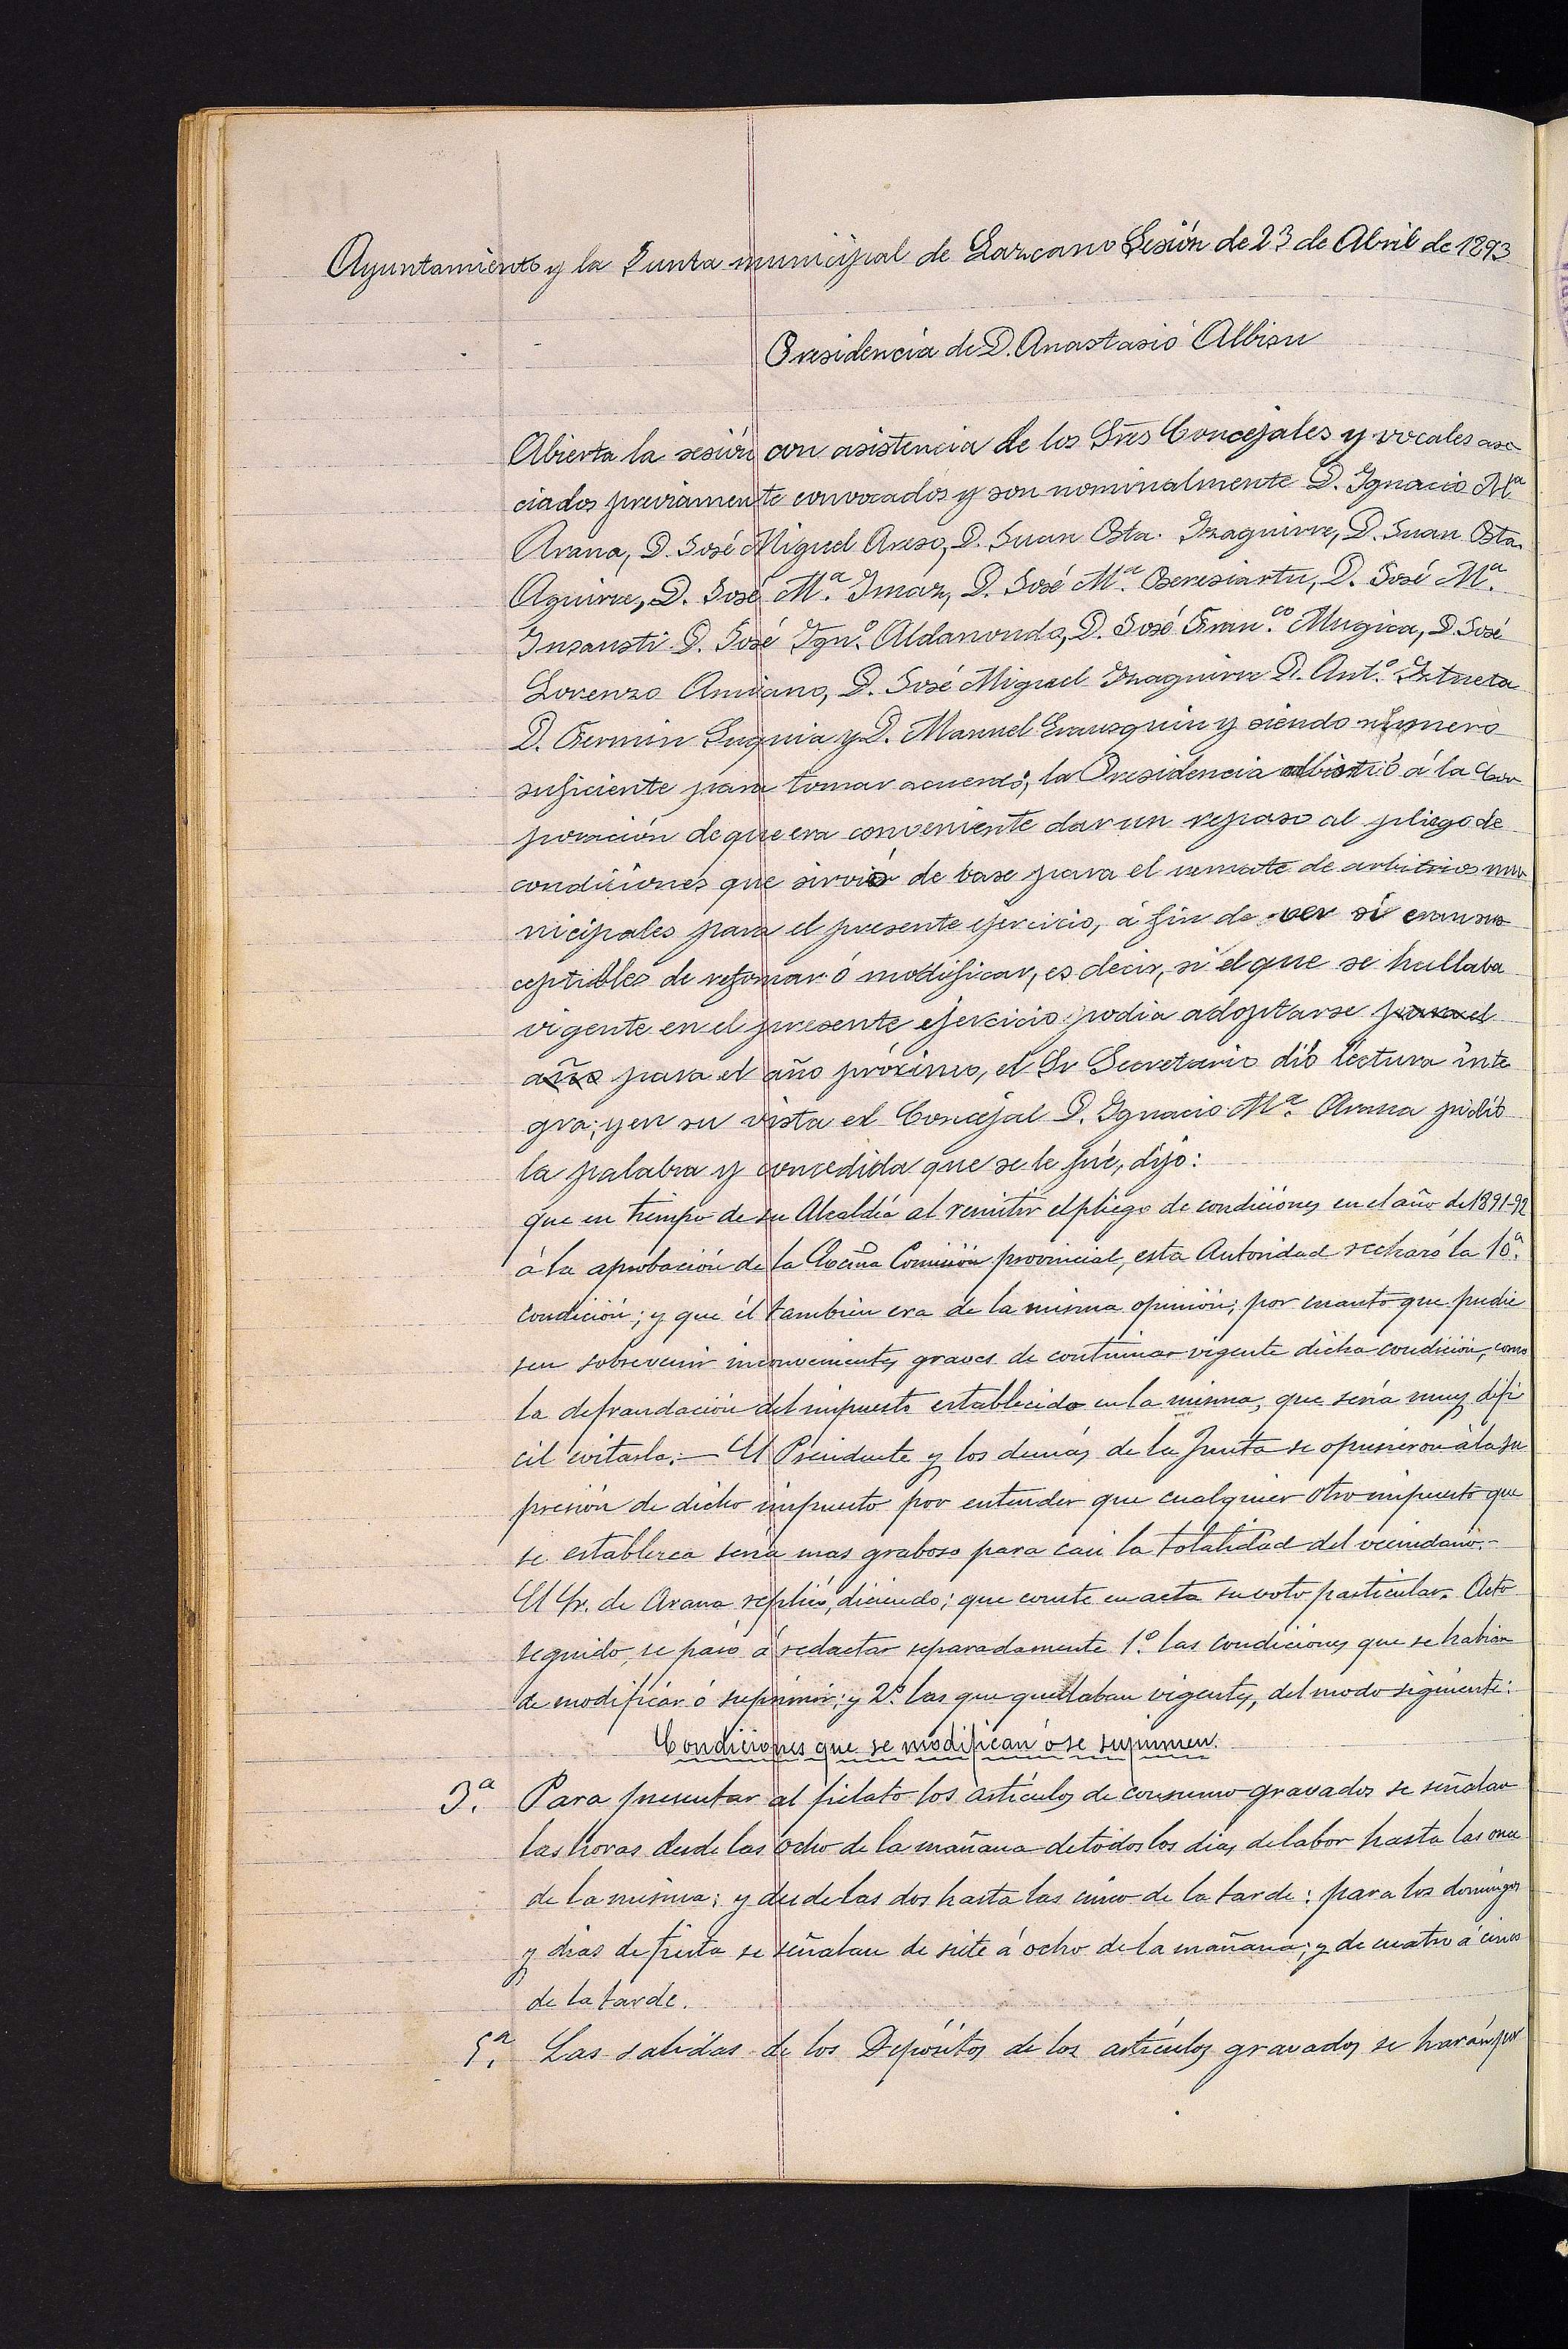 Ayuntamiento y la Junta municipal de Lazcano Sesión de 23 de Abril de 1893
Presidencia de D. Anastasio Albisu
Abierta la sesión con asistencia de los Sres Concejales y vocales aso
ciados previamente convocados y son nominalmente D. Ignacio Mª
Arana, D. José Miguel Areso, D. Juan Bta. Izaguirre, D. Juan Bta.
Aguirre, D. José Mª. Imaz, D. José Mª. Beresiartu, D. José Mª.
Insausti D. José Ign.º Aldanondo, D. José Fran.co Mugica, D. José
Lorenzo Amiano, D. José Miguel Izaguirre D. Ant.º Iztueta
D. Fermin Luquia y D. Manuel Erausquin y siendo número
suficiente para tomar acuerdo, la Presidencia advirtió á la Cor
poración de que era conveniente dar un repaso al pliego de
condiciones que sirvió de base para el remate de arbitrios mu
nicipales para el presente ejercicio, á fin de ver si eran sus
ceptibles de reformar ó modificar, es decir, si el que se hallaba
vigente en el presente ejercicio podia adoptarse para el
año para el año próximo, el Sr Secretario dió lectura ínte
gra; y en su vista el Concejal D. Ignacio Mª. Arana pidió
la palabra y concedida que se le fué, dijo:
que en tiempo de su Alcaldía al remitir el pliego de condiciones en el año de 1891-92
á la aprobación de la Excma Comisión provincial, esta Autoridad rechazó la 10ª.
condición; y que él tambien era de la misma opinión; por cuanto que pudie
sen sobrevenir inconvenientes graves de continuar vigente dicha condición, como
la defraudación del impuesto establecido en la misma, que sería muy difi
cil evitarla. — El Presidente y los demás de la Junta se opusieron á la su
presión de dicho impuesto por entender que cualquier otro impuesto que
se establezca sería mas graboso para casi la totalidad del vecindario.-
El Sr. de Arana replicó, diciendo; que conste en acta su voto particular. Acto
seguido, se pasó á redactar separadamente 1.º las condiciones que se habian
de modificar ó suprimir; y 2.º las que quedaban vigentes, del modo siguiente:
Condiciones que se modifican ó se suprimen.
3ª. Para presentar al fielato los artículos de consumo gravados se señalan
las horas desde las ocho de la mañana de todos los dias de labor hasta las once
de la misma; y desde las dos hasta las cinco de la tarde: para los domingos
y dias de fiesta se señalan de siete á ocho de la mañana; y de cuatro á cinco
de la tarde.
5ª. Las salidas de los Depósitos de los artículos gravados se harán por